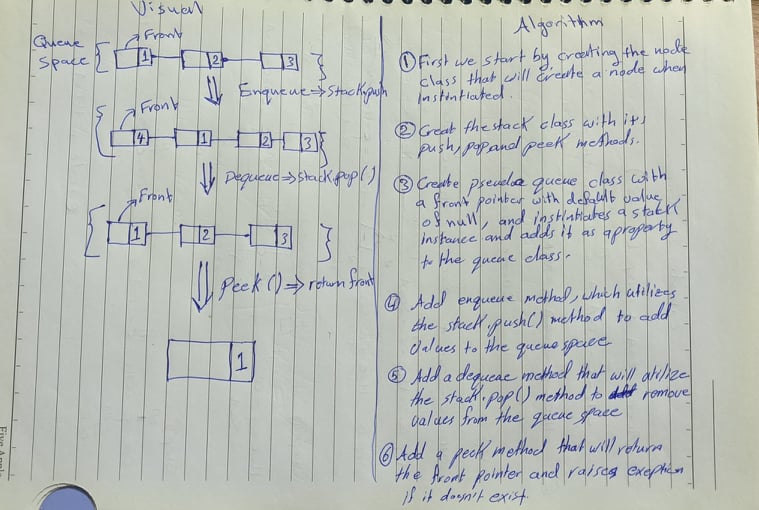 Visual
Queue
Space
Front
1
2
3
Enqueue => Stack.push
Front
4
1
2
3
Dequeue => stack.pop()
Front
1
2
3
Peek() => return front
1
Algorithm
① First we start by creating the node
class that will create a node when
instintiated.
② Creat the stack class with its
push, pop and peek methods.
③ Create pseudo queue class with
a front pointer with default value
of null, and instintiates a stack
instance and adds it as a property
to the queue class.
④ Add enqueue method, which utilizes
the stack.push() method to add
values to the queue space
⑤ Add a dequeue method that will utilize
the stack.pop() method to remove
values from the queue space
⑥ Add a peek method that will return
the front pointer and raises exeption
if it doesn't exist.